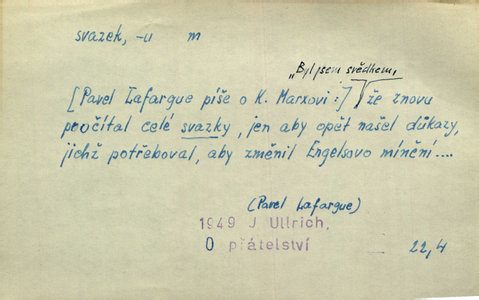 svazek, -u m
„Byl jsem svědkem,
[Pavel Lafargue píše o K. Marxovi:] že znovu
pročítal celé svazky, jen aby opět našel důkazy,
jichž potřeboval, aby změnil Engelsovo mínění....
(Pavel Lafargue)
1949 J Ullrich,
O přátelství
22,4